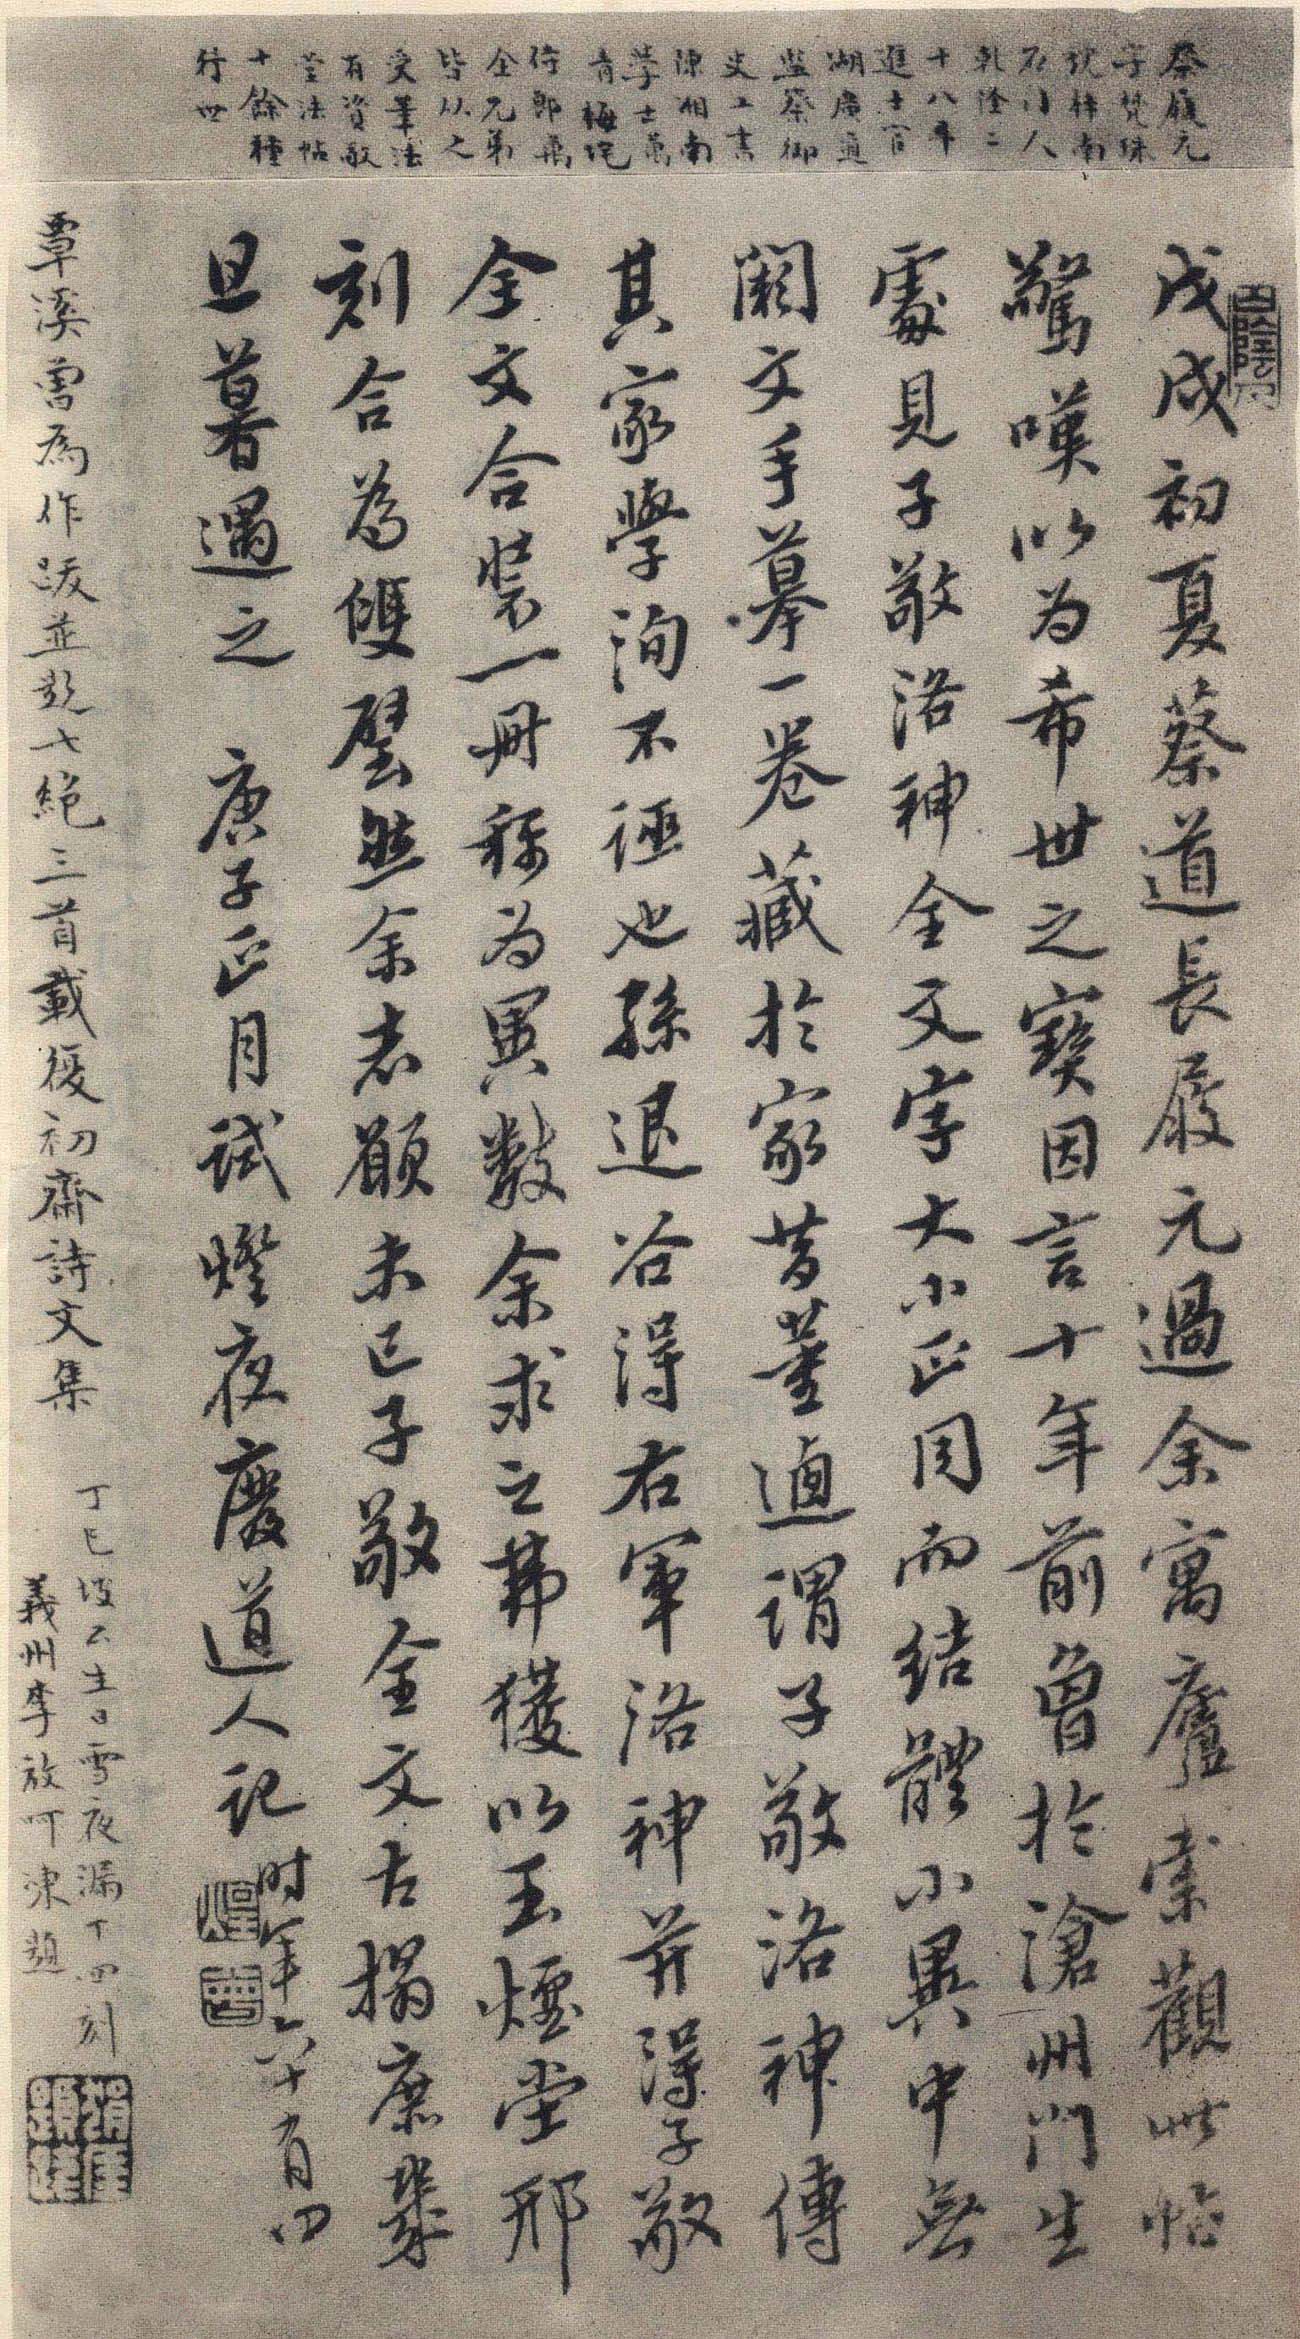 蔡履元
字梵珠
號梓南
石門人
乾隆二
十八年
進士官
湖廣道
監察御
史工書
陳湘南
學士萬
青梅垞
侍郎兩
全兄弟
皆從之
受筆法
有資敬
堂法帖
十餘種
行世
戊戌初夏蔡道長履元過余寓廬索觀此帖
驚嘆以为希世之寶因言十年前曾於滄州門生
處見子敬洛神全文字大小正同而結體小異中無
闕文手摹一卷藏於家昔董逌謂子敬洛神傳
其家學洵不誣也孫退谷得右軍洛神并得子敬
全文合裝一冊稱为異數余求之弗獲以玉煙堂邢
刻合為雙璧然余志願未已子敬全文古搨庶幾
旦暮遇之 庚子正月試燈夜慶道人記 时年六十有四
覃溪曾為作跋並題七絕三首載復初齋詩文集
丁巳坡公生日雪夜漏下四刻
義州李放呵凍題